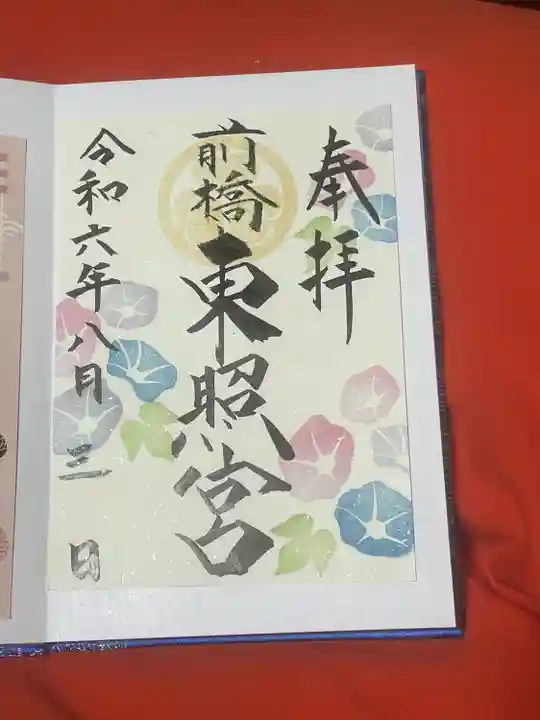 奉拝
前橋東照宮
令和六年八月三日